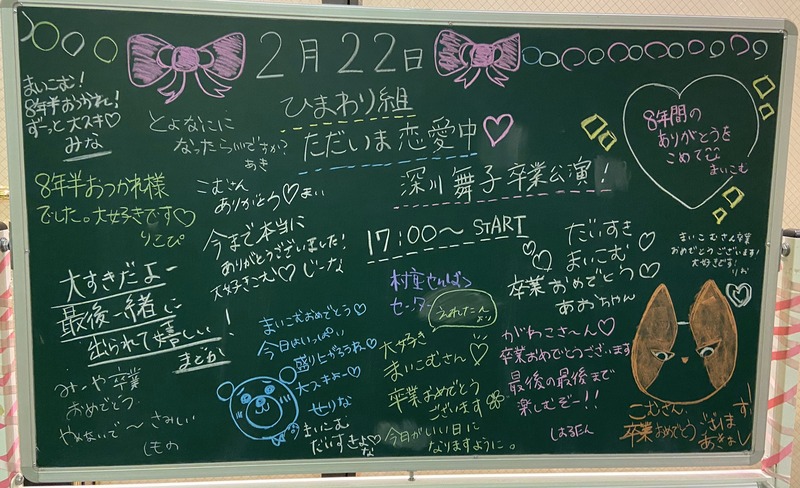 2月22日
ひまわり組
ただいま恋愛中♡
深川舞子卒業公演!
17:00〜START
まいこむ!
8年半おつかれ!
ずっと大スキ♡
みな
とよなにに
なったらいいですか?
あき
8年半おつかれ様
でした。大好きです♡
りこぴ
こむさん
ありがとう♡まい
今まで本当に
ありがとうございました!
大好きこむ♡じーな
大すきだよー
最後一緒に
出られて嬉しい!
まどか
みーや卒業
おめでとう
やめないで〜さみしい
しもの
まいこむおめでとう♡
今日はいっぱい
盛り上がろうね♡
大スキよー♡
せりな
まいこむ
だいすきよ♡
な
村重せんぱい
センター
大好き
まいこむさん♡
卒業おめでとう
ございます
今日がいい日に
なりますように。
だいすき
まいこむ♡
卒業おめでとう♡
あおちゃん
がわこさ〜ん♡
卒業おめでとうございます
最後の最後まで
楽しむぞー!!
しおるたん
8年間の
ありがとうを
こめて
まいこむ
まいこむさん卒業
おめでとうございます!
大好きです!
りお
こむさん、
卒業おめでとうございます!